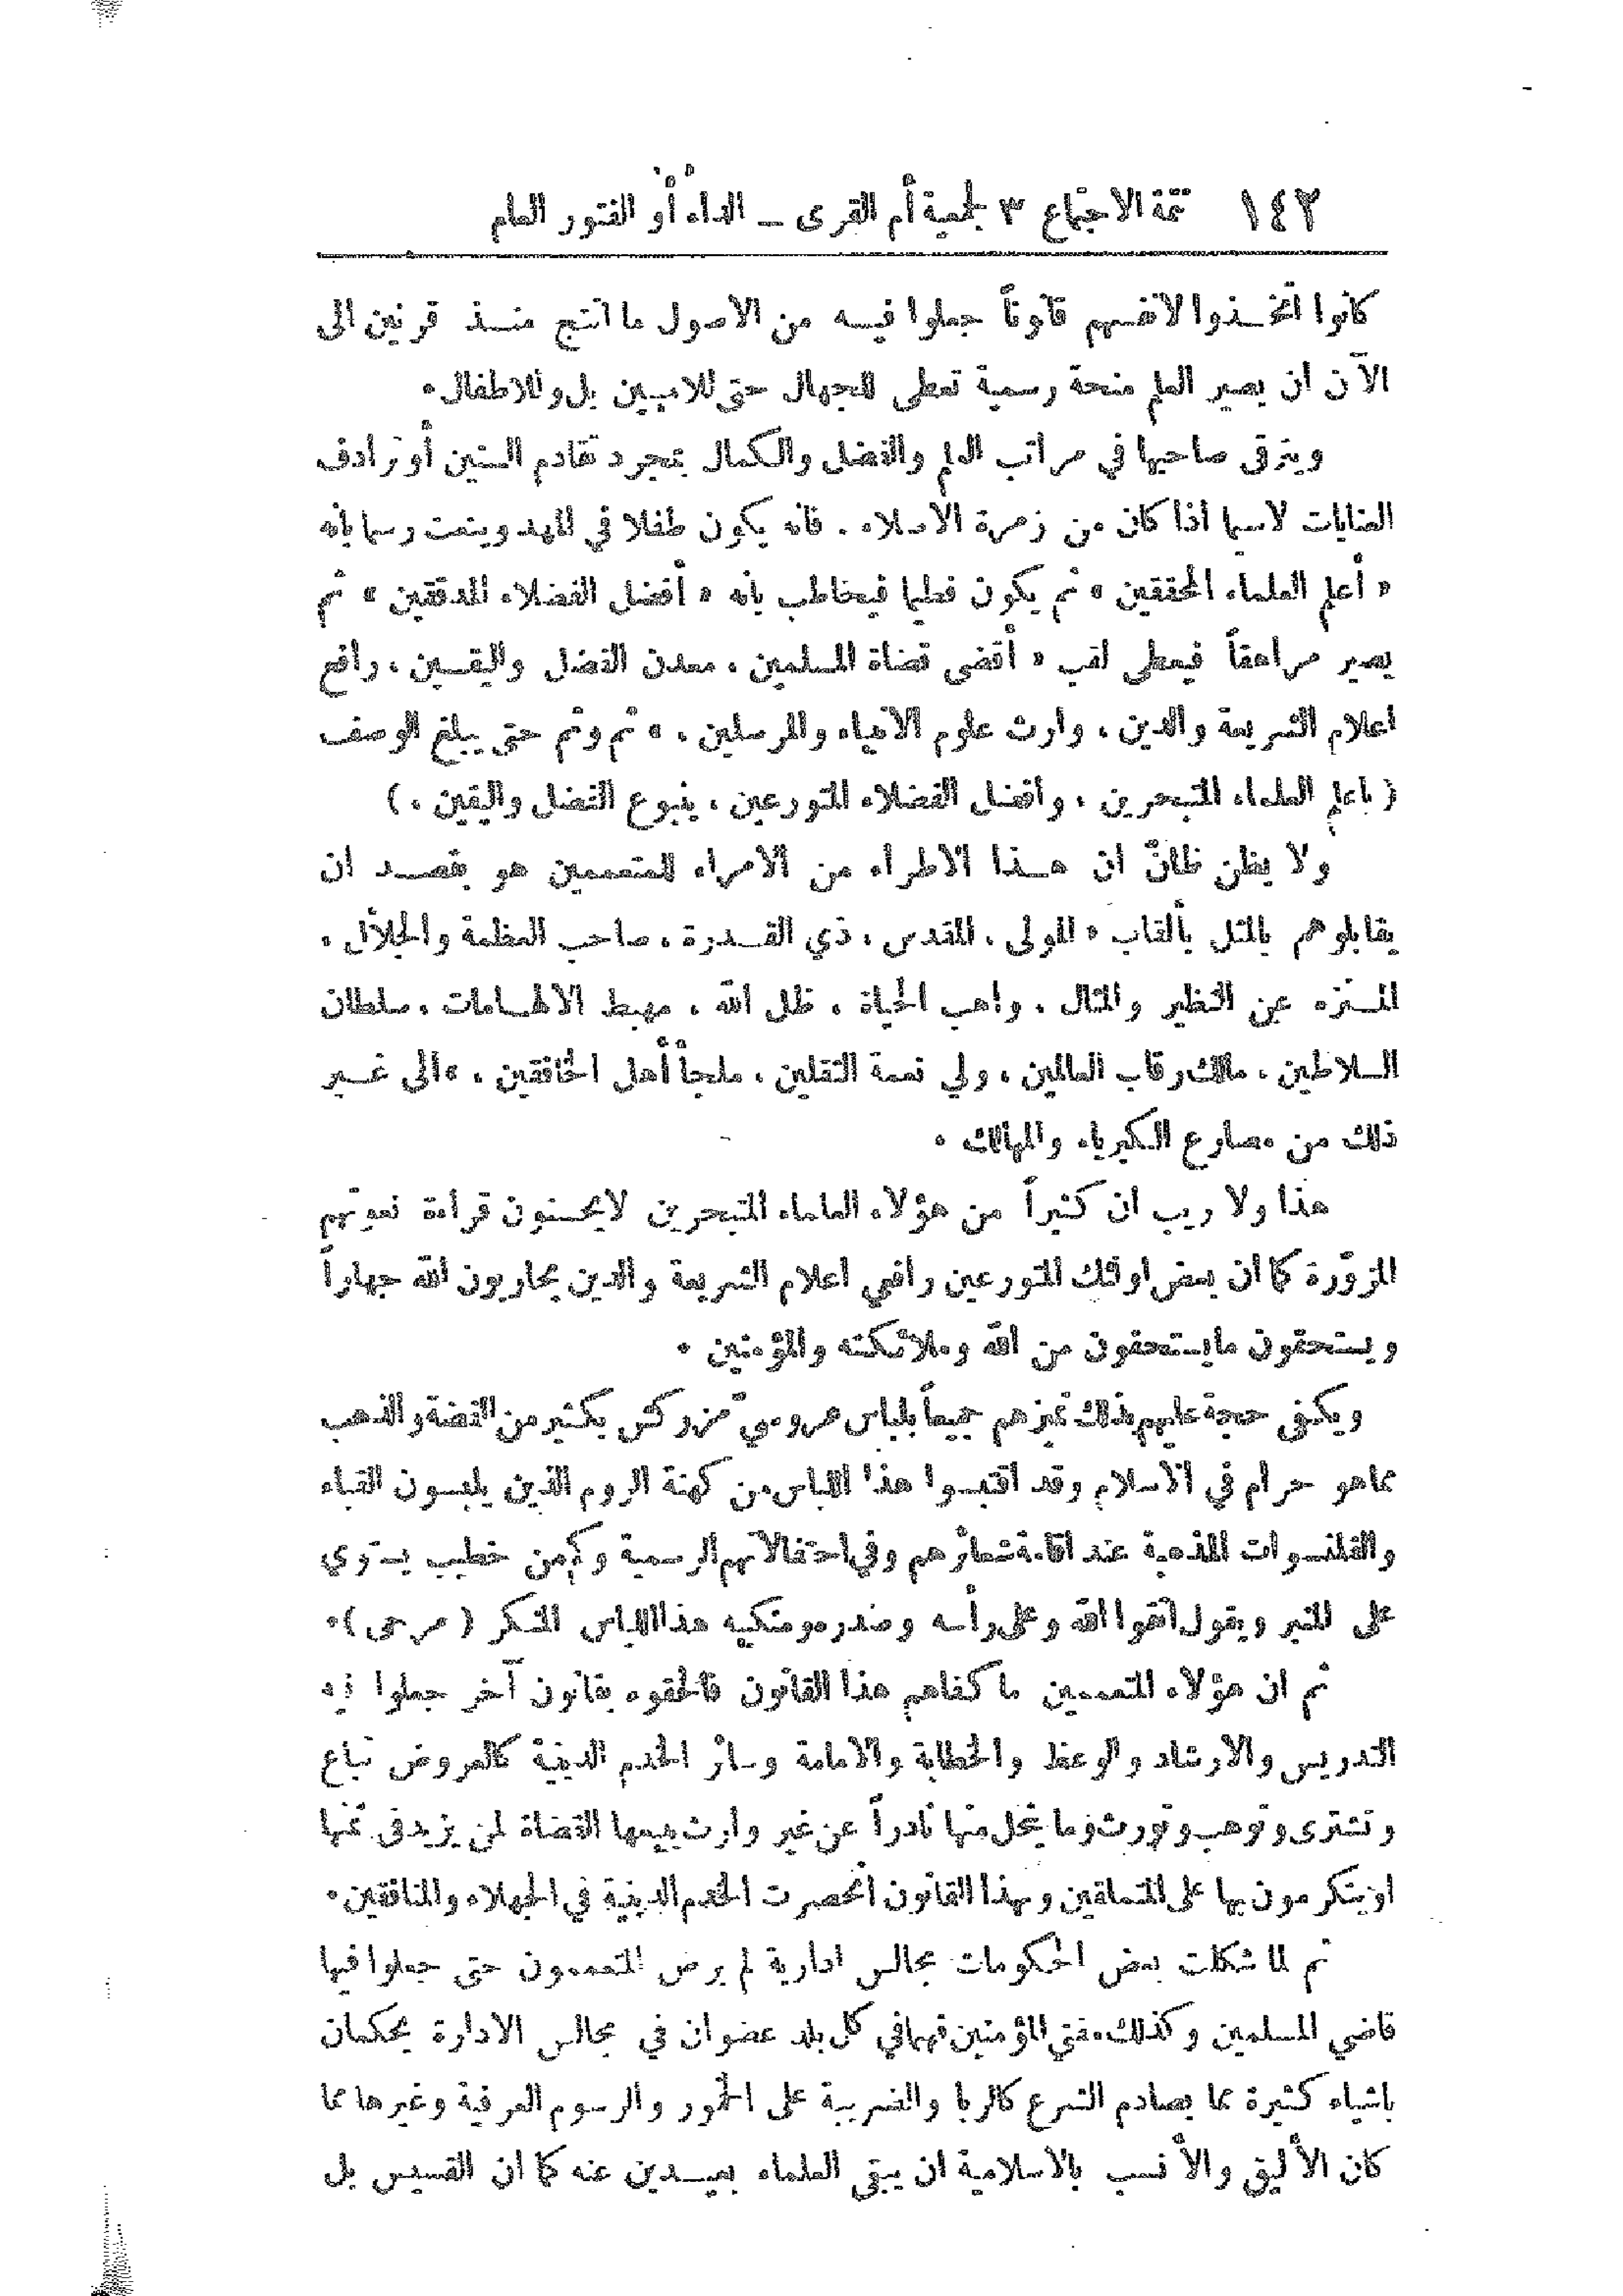 ١٤٢ تتمة الاجتماع ٣ لجمعية أم القرى ــ الداء أو الفتور العام
كانوا اتخــذوا لانفسهم قانوناً جعلوا فيــه من الاصول ما انتج منــذ قرنين الى
الآن ان يصير العلم منحة رسمية تعطى للجهال حتى للاميين بل وللاطفال.
ويترقى صاحبها في مراتب العلم والفضل والكمال بمجرد تقادم السنين أو ترادف
العنايات لاسيما اذا كان من زمرة الاصلاء. فانه يكون طفلا في المهد وينعت رسما بانه
« أعلم العلماء المحققين » ثم يكون فطيما فيخاطب بانه « أفضل الفضلاء المدققين » ثم
يصير مراهقاً فيعطى لقب « أقضى قضاة المسلمين، معدن الفضل واليقــين، رافع
اعلام الشريعة والدين، وارث علوم الانبياء والمرسلين، » ثم وثم حتى يبلغ الوصف
( باعلم العلماء المتبحرين، وأفضل الفضلاء المتورعين، ينبوع الفضل واليقين.)
ولا يظن ظانّ ان هــذا الاطراء من الامراء للمتعممين هو بقصــد ان
يقابلوهم بالمثل بألقاب « المولى، المقدس، ذي القــدرة، صاحب العظمة والجلال،
المــنزه عن النظير والمثال، واهب الحياة، ظل الله، مهبط الالهــامات، سلطان
السلاطين، مالك رقاب العالمين، ولي نعمة الثقلين، ملجأ أهل الخافقين، » الى غــير
ذلك من مصارع الكبرياء والمهالك.
هذا ولا ريب ان كثيراً من هؤلاء العلماء المتبحرين لايحسنون قراءة نعوتهم
المزوّرة كما ان بعض اولئك المتورعين رافعي اعلام الشريعة والدين يحاربون الله جهاراً
ويستحقون مايستحقون من الله وملائكته والمؤمنين.
ويكفى حجة عليهم بذلك تميزهم جميعاً بلباس عروسيّ مزركش بكثير من الفضة والذهب
مماهو حرام في الاسلام وقد اقتبسوا هذا اللباس من كهنة الروم الذين يلبسون القباء
والقلنسوات المذهبة عند اقامة شعائرهم وفي احتفالاتهم الرسمية وكم من خطيب يستوي
على المنبر ويقول اتقوا الله وعلى رأسه وصدره ومنكبيه هذا اللباس المنكر (مرحى).
ثم ان هؤلاء المتعممين ما كفاهم هذا القانون فالحقوه بقانون آخر جعلوا فيه
التدريس والارشاد والوعظ والخطابة والامامة وسائر الخدم الدينية كالعروض تباع
وتشترى وتوهب وتورث وما ينحل منها نادراً عن غير وارث يبيعها القضاة لمن يزيد فى ثمنها
او يتكرمون بها على المتملقين وبهذا القانون انحصرت الخدم الدينية في الجهلاء والمنافقين.
ثم لما شكلت بعض الحكومات مجالس ادارية لم يرض المتعممون حتى جعلوا فيها
قاضي المسلمين وكذلك مفتي المؤمنين فهما في كل بلد عضوان في مجالس الادارة يحكمان
باشياء كثيرة مما يصادم الشرع كالربا والضريبة على الخمور والرسوم العرفية وغيرها مما
كان الأليق والأنسب بالاسلامية ان يبقى العلماء بعيــدين عنه كما ان القسيس بل